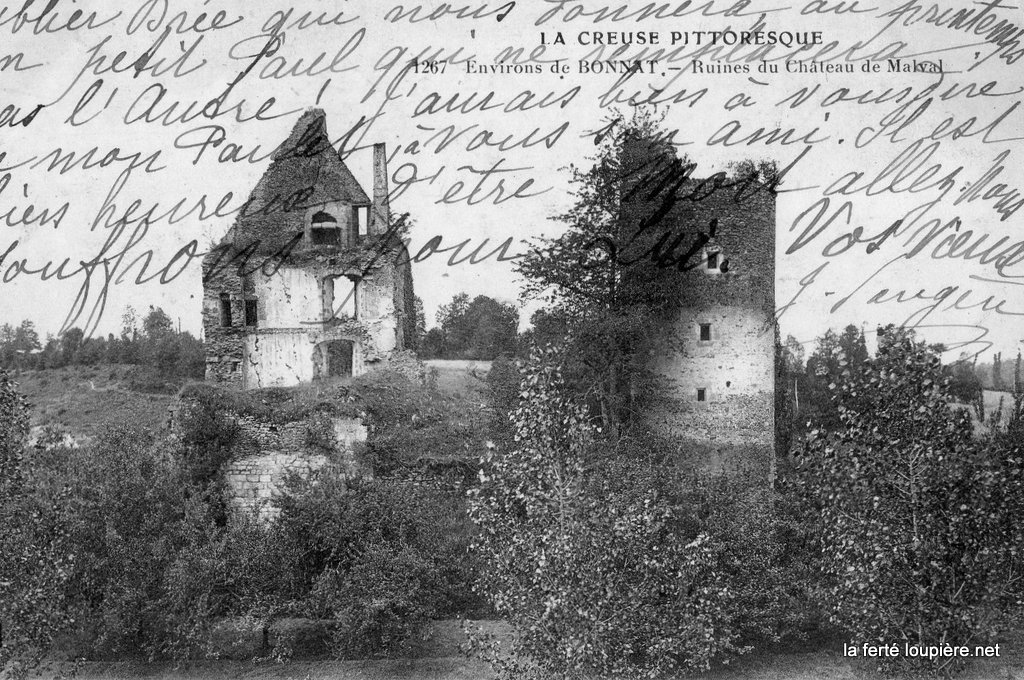 ublier Brée qui nous donnera au printemps
un petit Paul qui ne remplacera
pas l'Autre! J'aurais bien à vous dire
mon Paulet, à Vous son ami. Il est
tiers heureux d'être Moi allez. Nous
souffrons pour Lui. Vos Vœux
LA CREUSE PITTORESQUE
1267 Environs de BONNAT. — Ruines du Château de Malval
la ferté loupière.net